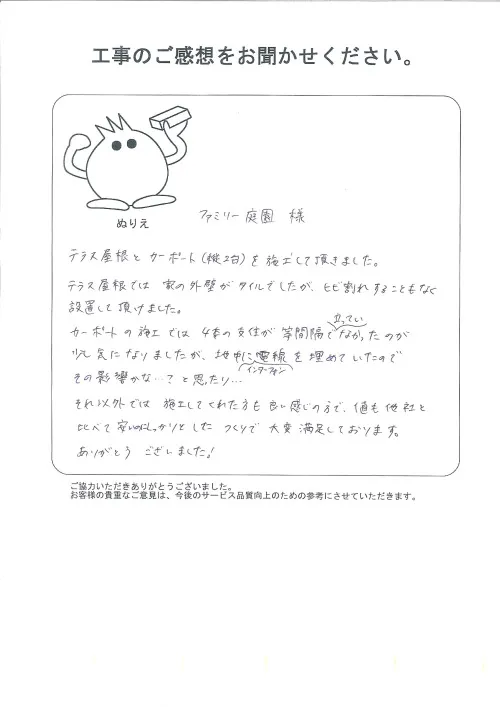 工事のご感想をお聞かせください。
ぬりえ
ファミリー庭園 様
テラス屋根と カーポート(縦2台)を 施工して頂きました。
テラス屋根では 家の外壁が タイルでしたが、ヒビ割れすることもなく
設置して頂けました。
立ってい
カーポートの施工では 4本の支柱が 等間隔でなかったのが
少し気になりましたが、地中に電線を埋めていたので
インターフォン
その影響かな…?と思ったり…
それ以外では 施工してくれた方も 良い感じの方で、値も他社と
比べて安いのにしっかりとした つくりで 大変満足しております。
ありがとう ございました!
ご協力いただきありがとうございました。
お客様の貴重なご意見は、今後のサービス品質向上のための参考にさせていただきます。